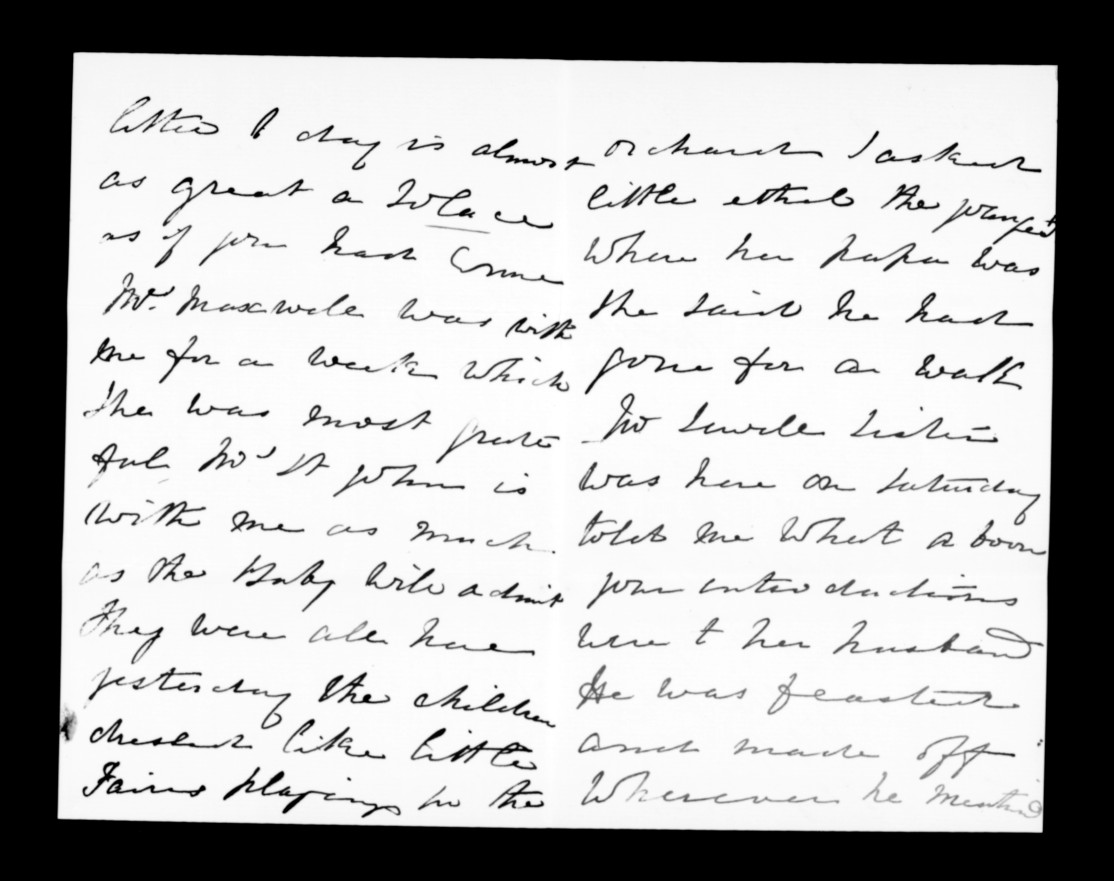 letter to day is almost
as great a solace
as if you had come
Mrs. Maxwell was with
me for a week which
she was most grate
ful Mrs St John is
with me as much
as the Baby will admit
They were all here
yesterday the children
dressed like little
Fairies playing in the
orchard I asked
little ethel the youngest
where her papa was
she said he had
gone for a walk
Mr Sewell Sister
was here on Saturday
told me what a boon
your introductions
were to her husband
He was feasted
and made off
Wherever he mention